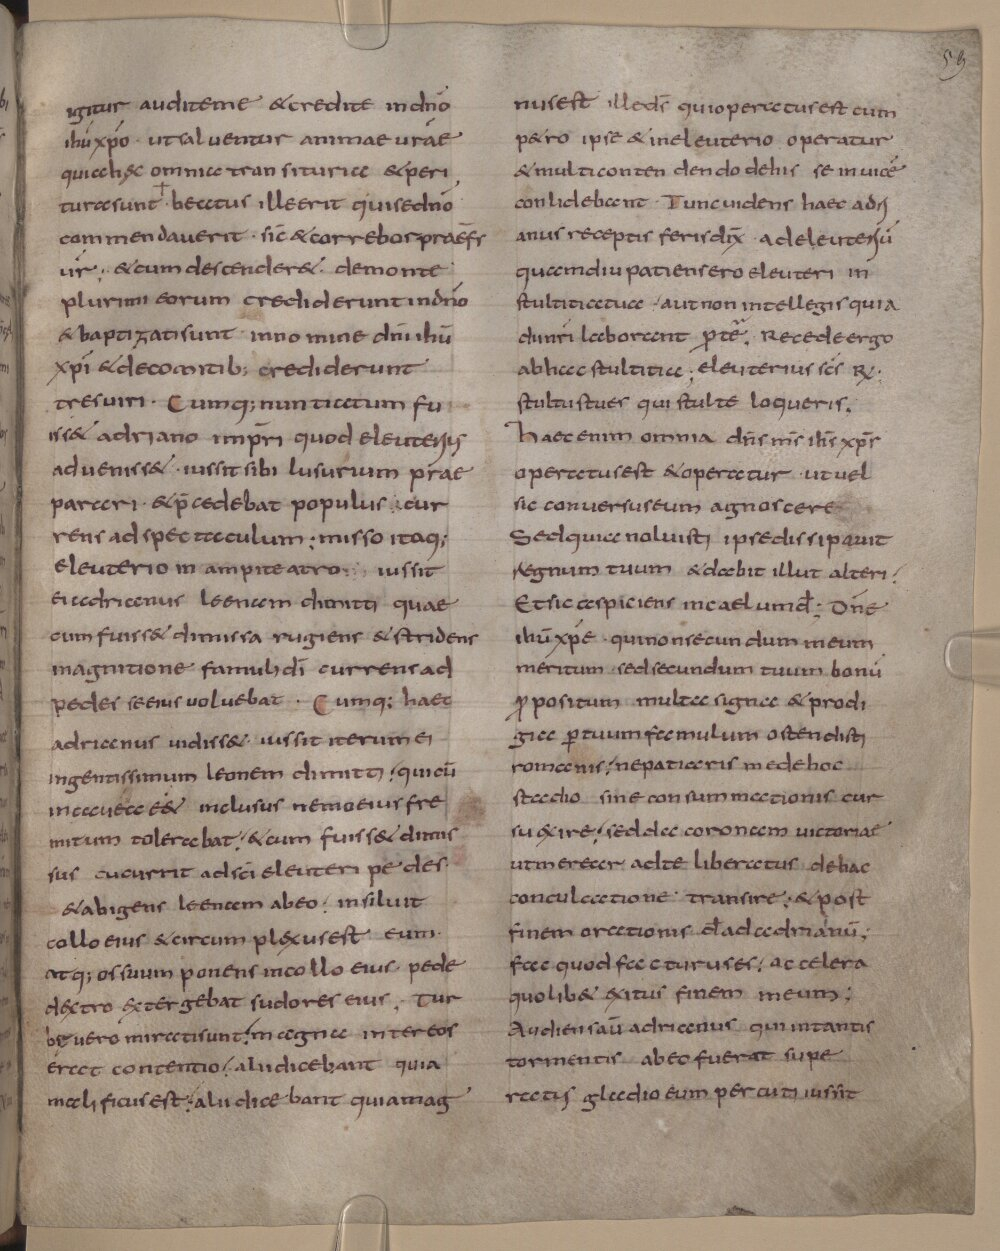 59
igitur auditeme &credite indn̄o
ihū xp̄o · utsaluentur animae ur̄ae
quia h&c omnia transiturica &peri
turasunt · beatus illeerit quisedn̄o
commendauerit · sic̄ &correbospraefr
ur̄; &cumdescender& demonte
plurimi eorum crediderunt indn̄o
&baptizatisunt innomine dn̄i ihū
xp̄i &decomitib; crediderunt
tresuiri · Cumq; nuntiatum fu
iss& adriano imp̄ri quod eleuterius
aduenisse& · iussit sibi lusurium p̄rae
parari · &p̄cedebat populus cur
rens adspectaculum; misso itaq;
eleuterio in ampiteatro iussit
ei adrianus leaenam dimitti quae
cum fuiss& dimissa rugiens &stridens
magnitione famuli dī currens ad
pedes seeius uoluebat · Cumq; haec
adrianus uidiss& iussit iterum ei
ingentissimum leonem dimitti; quicū
incauea e& inclusus nemo eius fre
mitum tolerabat; &cum fuiss& dimis
sus cucurrit adsc̄i eleuteri pedes
&abigens leaenam abeo; insiluit
collo eius &circumpl&usest eum
atq; ossuum ponens incollo eius pede
d&tro &tergebat sudores eius; Tur
be uero miratisunt; magna intereos
erat contentio; alii dicebant quia
maleficus est; alii dicebant quia mag
nusest illeds̄ quioperatusest cum
p&ro ipse &ineleuterio operatur
&multicontendendo dehis se inuicē
conlidebant · Tunc uidens haec adri
anus receptis ferisdix̄ adeleuteriū
quamdiu patiensero eleuteri in
stultitiatua · autnon intellegis quia
duniri laborant p̄te; Recede ergo
abhac stultitia; eleuterius sc̄s R̄;
stultustues qui stulte loqueris;
haec enim omnia dn̄s ms̄ ihs̄ xp̄s
operatusest &operatur · utuel
sic conuersuseum agnoscere
Sedquia noluisti ipsedissipauit
regnum tuum &dabit illut alteri;
Etsic aspiciens incaelumd̄; Dn̄e
ihū xp̄e · quinonsecundum meum
meritum · sedsecundum tuum bonū
p̄positum multa signa &prodi
gia p̄tuum famulum ostendisti
romanis; nepatiaris medehoc
stadio sine consummationis cur
su &ire; seddaa coronam uictoriae
utmerear adte liberatus dehac
conculcatione transire; &post
finem orationis d̄ adadrianū;
fac quod facturuses; accelera
quolib& &itus finem meum;
Audiensaū adrianus qui intantis
tormentis abeo fuerat supe
ratus gladio eum percuti iussit